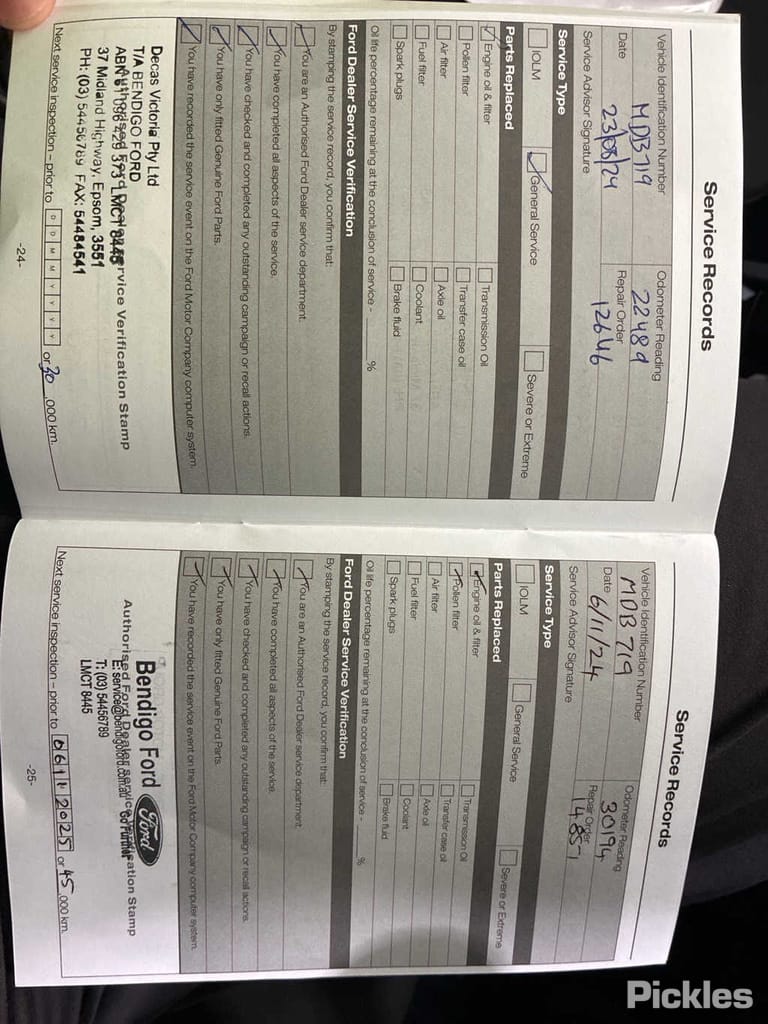 Service Records
Vehicle Identification Number
Odometer Reading
MDB719
22489
Date
Repair Order
23/08/24
12646
Service Advisor Signature
Service Type
IOLM
General Service
Severe or Extreme
Parts Replaced
Engine oil & filter
Transmission Oil
Pollen filter
Transfer case oil
Air filter
Axle oil
Fuel filter
Coolant
Spark plugs
Brake fluid
Oil life percentage remaining at the conclusion of service - %
Ford Dealer Service Verification
By stamping the service record, you confirm that:
You are an Authorised Ford Dealer service department.
You have completed all aspects of the service.
You have checked and completed any outstanding campaign or recall actions.
You have only fitted Genuine Ford Parts.
You have recorded the service event on the Ford Motor Company computer system.
Decas Victoria Pty Ltd
T/A BENDIGO FORD
Authorised Ford Dealer Service Verification Stamp
LMCT 8445
37 Midland Highway, Epsom, 3551
PH: (03) 54456789 FAX: 54484541
Next service inspection – prior to D D M M Y Y Y Y or 30 ,000 km.
-24-
Service Records
Vehicle Identification Number
Odometer Reading
MDB719
30194
Date
Repair Order
6/11/24
Service Advisor Signature
Service Type
IOLM
General Service
Severe or Extreme
Parts Replaced
Engine oil & filter
Transmission Oil
Pollen filter
Transfer case oil
Air filter
Axle oil
Fuel filter
Coolant
Spark plugs
Brake fluid
Oil life percentage remaining at the conclusion of service - %
Ford Dealer Service Verification
By stamping the service record, you confirm that:
You are an Authorised Ford Dealer service department.
You have completed all aspects of the service.
You have checked and completed any outstanding campaign or recall actions.
You have only fitted Genuine Ford Parts.
You have recorded the service event on the Ford Motor Company computer system.
Bendigo Ford Ford
Go Further
Authorised Ford Dealer Service Verification Stamp
E: service@bendigoford.com.au
T: (03) 54456789
LMCT 8445
Next service inspection – prior to 06 11 2025 or 45 ,000 km.
-25-
Pickles